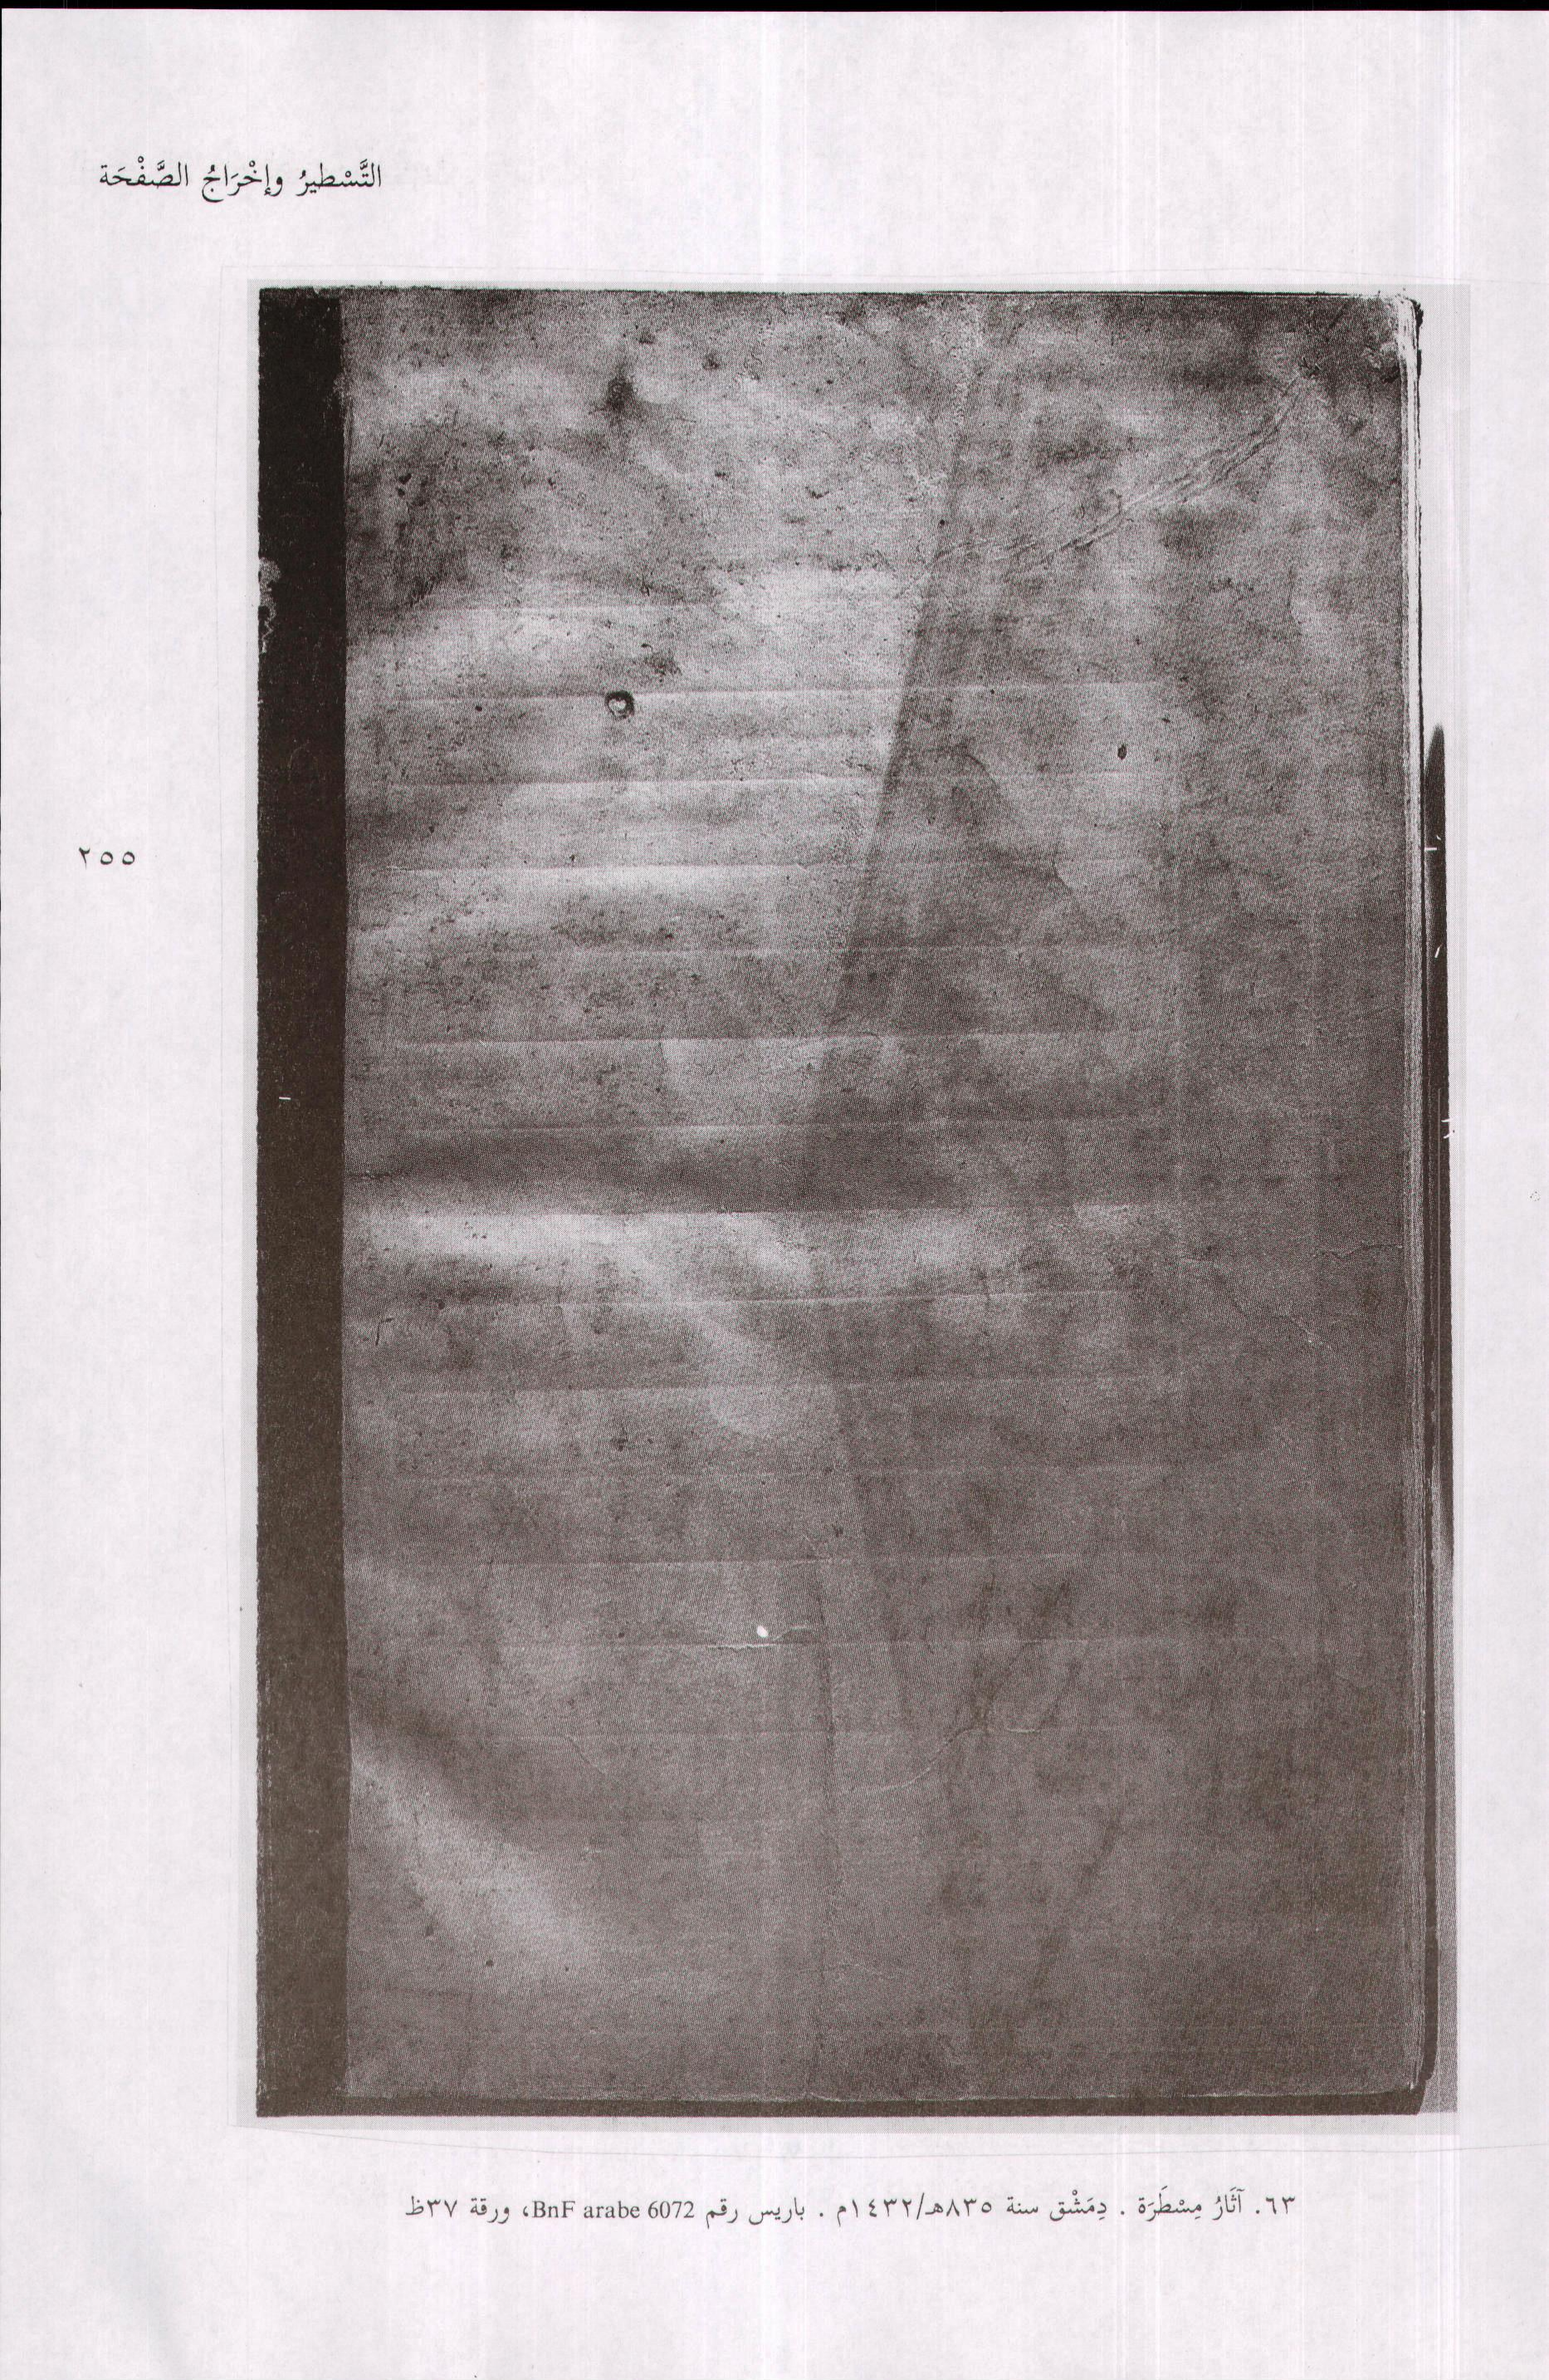 التَّسْطيرُ وإخْرَاجُ الصَّفْحَة
٢٥٥
٦٣. آثَارُ مِسْطَرَة . دِمَشْق سنة ٨٣٥هـ/١٤٣٢م . باريس رقم BnF arabe 6072، ورقة ٣٧ظ